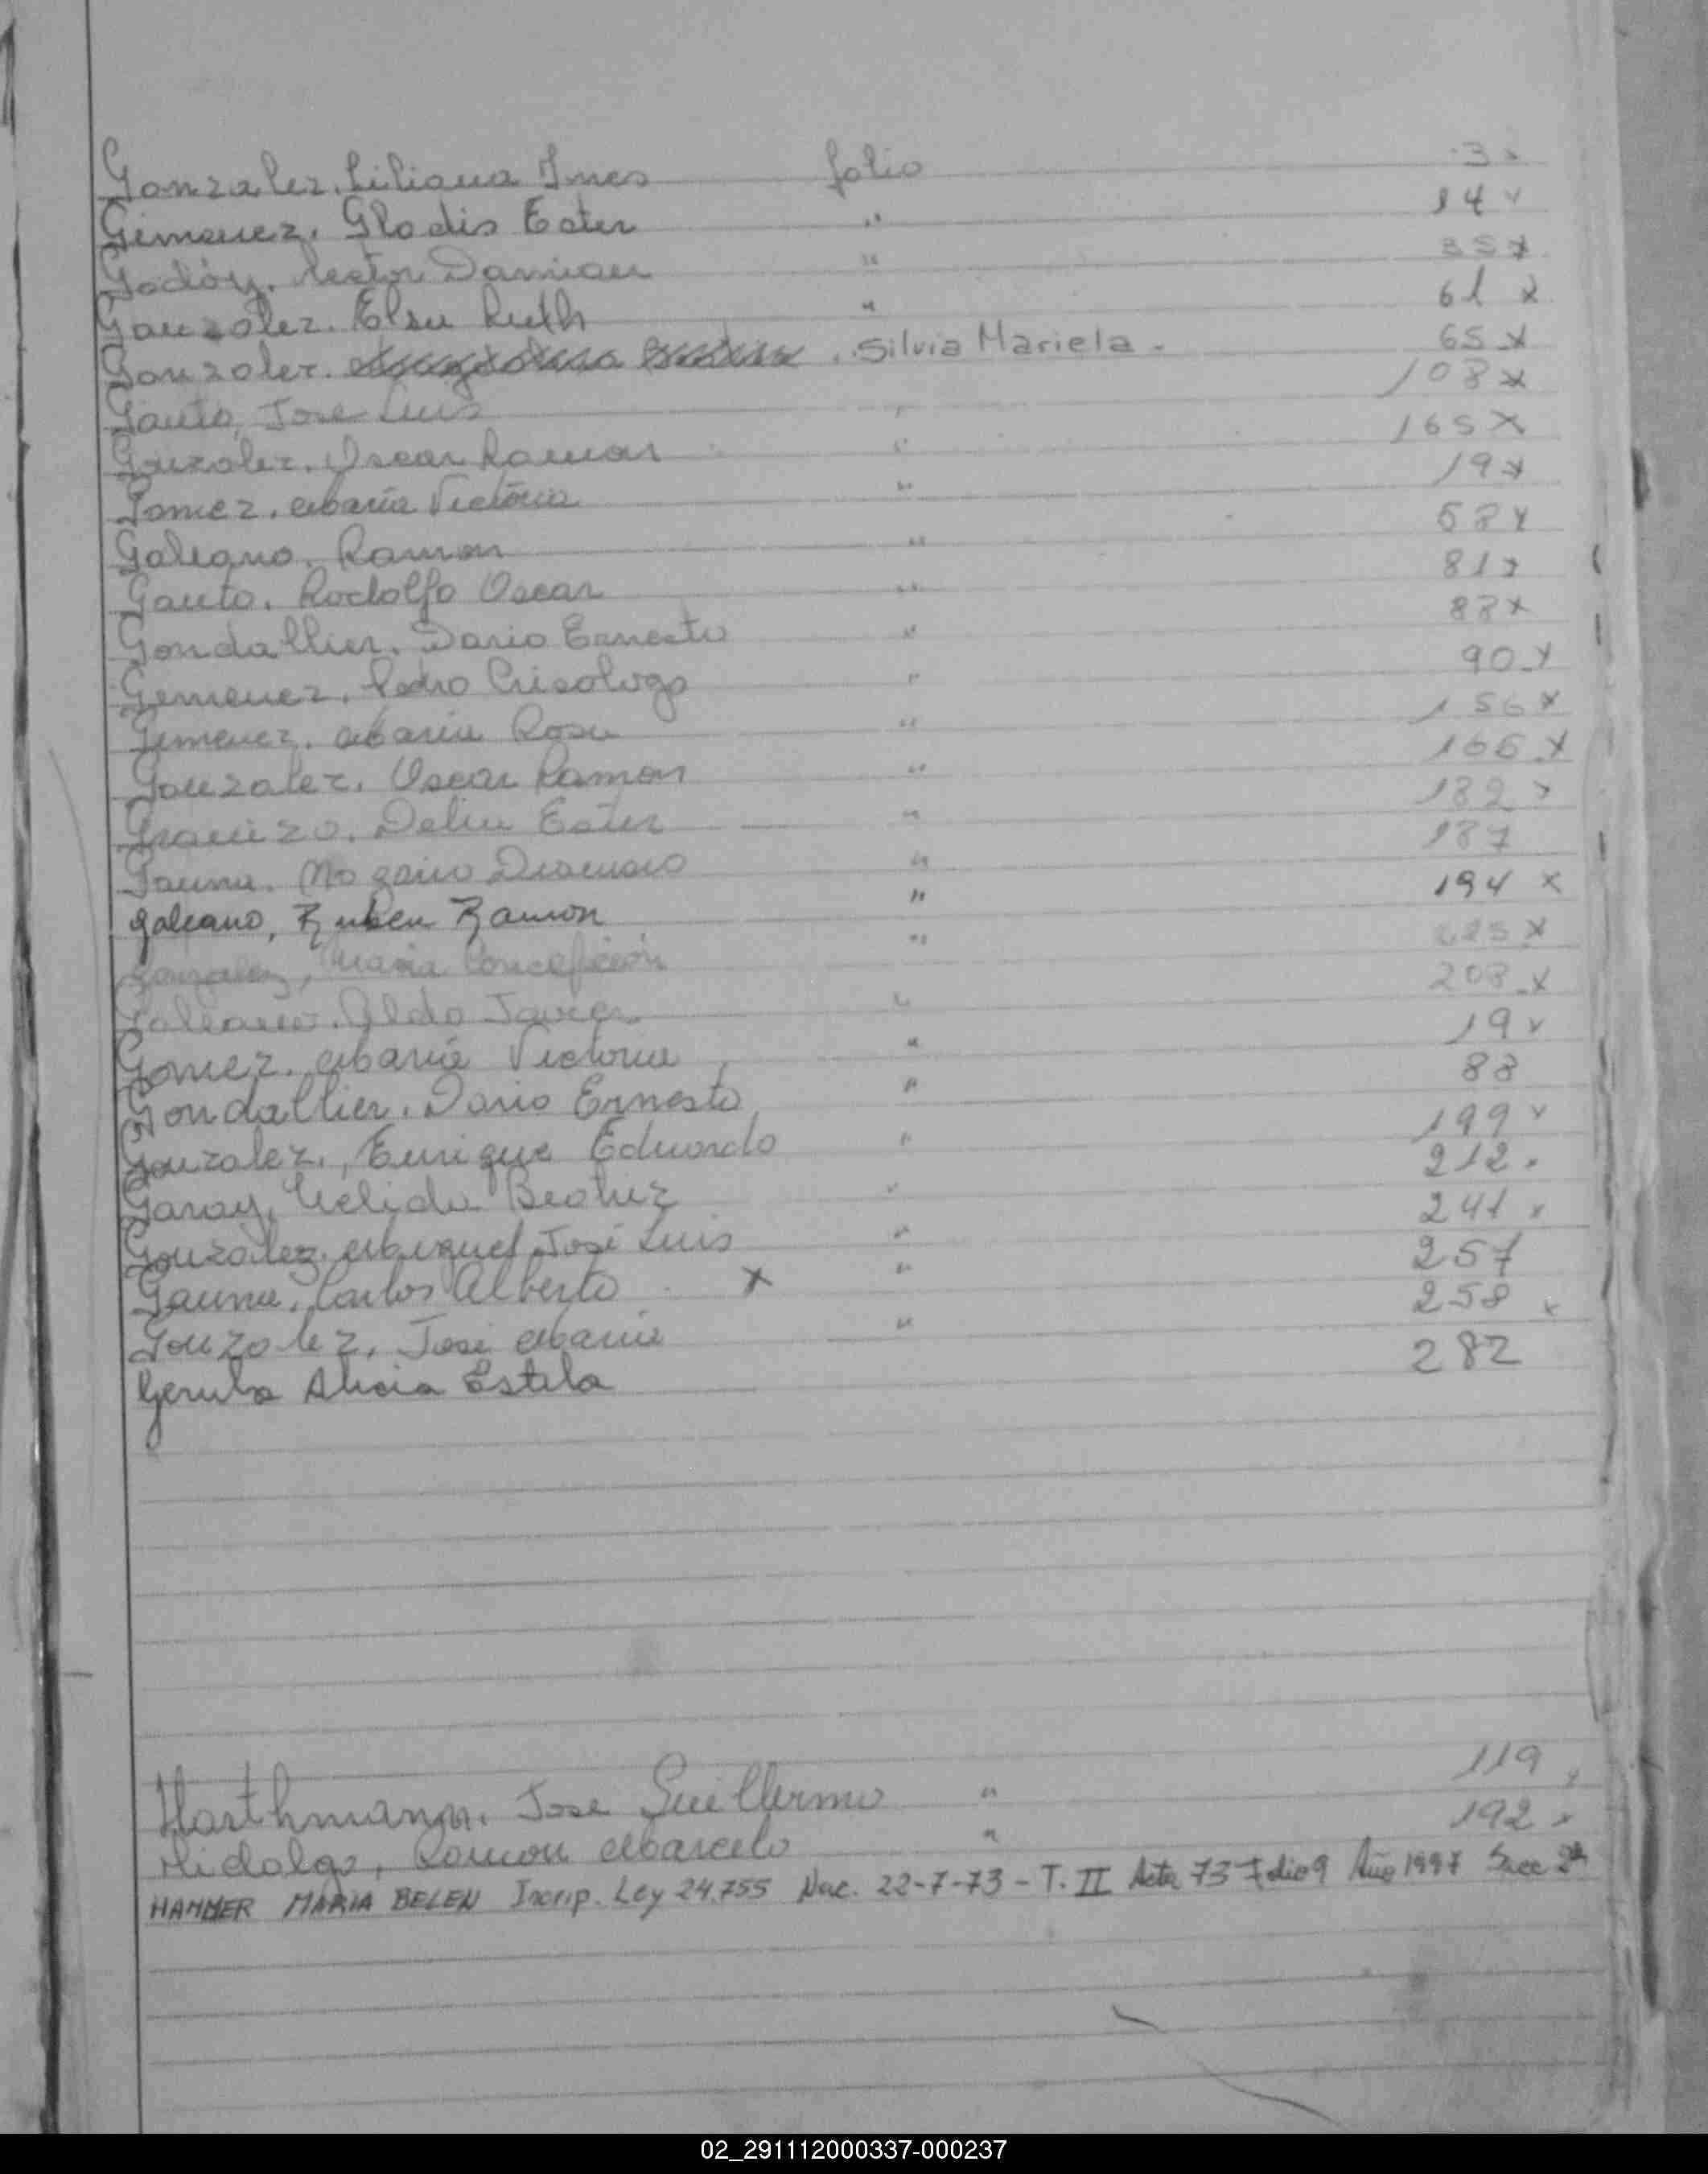 Gonzalez, Liliana Ines folio 3 x
Gimenez, Gladis Ester " 14 x
Godóy, Hector Damian " 35 x
Gonzalez, Elsa Ruth " 61 x
Gonzalez, Silvia Mariela - 65 x
Gauto, Jose Luis " 108 x
Gonzalez, Oscar Ramon " 165 x
Gomez, María Victoria " 19 x
Galeano, Ramon " 58 x
Gauto, Rodolfo Oscar " 81 x
Gondallier, Dario Ernesto " 88 x
Gemenez, Pedro Crisologo " 90 x
Jimenez, María Rosa " 156 x
Gonzalez, Oscar Ramon " 166 x
Granizo, Delia Ester " 182 x
Gauna, 187
Galeano, Ruben Ramon " 194 x
Gonzalez, Maria Concepción " 225 x
Galeano, Aldo Javier " 208 x
Gomez, María Victoria " 19 x
Gondallier, Dario Ernesto " 88
Gonzalez, Enrique Eduardo " 199 x
Garay, Nelida Beatriz " 212 x
Gonzalez, Miguel José Luis " 241 x
Gauna, Carlos Alberto x " 257
Gonzalez, José María " 258 x
Alicia Estela 282
Harthmann, Jose Guillermo " 119 x
Hidalgo, Ramon Marcelo " 192 x
HAMMER MARIA BELEN Inscrip. Ley 24.755 Nac. 22-7-73 - T. II Acta 73 Folio 9 Año 1997 Secc 2ª
02_291112000337-000237